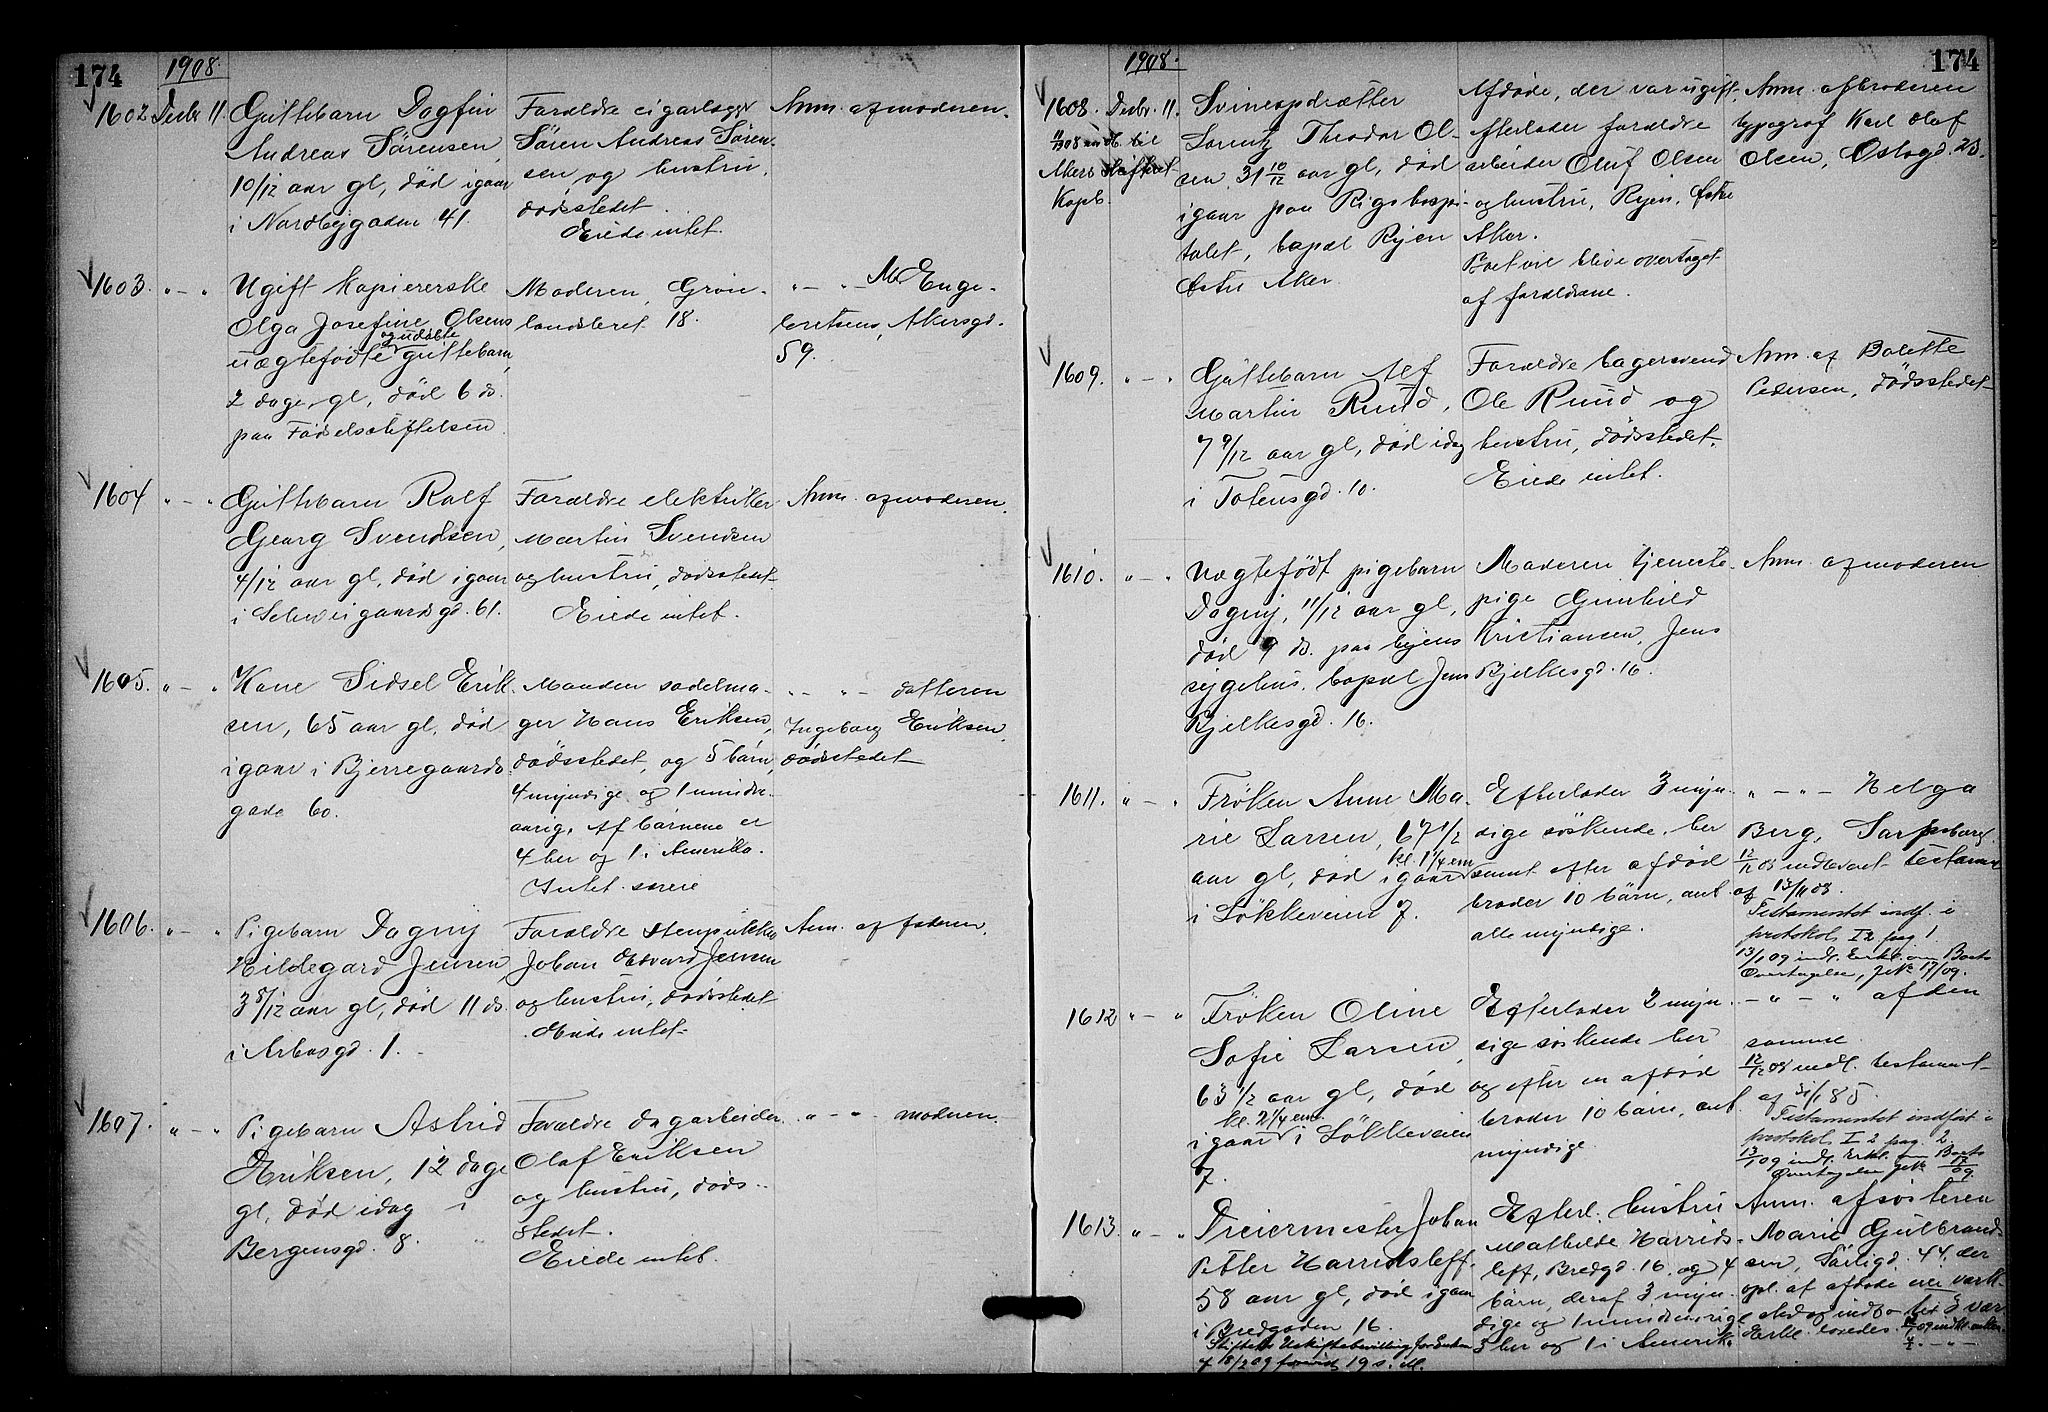 174
1908
1602 Decbr 11.
Guttebarn Dagfin
Andreas Sørensen,
10/12 aar gl, död igaar
i Nordbygaden 41.
Forældre cigarlager
Sören Andreas Sören-
sen og hustru,
dödsstedet.
Eiede intet.
Anm. af moderen.
1603. " - "
Ugift kopiererske
Olga Josefine Olsens
og udøbte
uægtefödte guttebarn,
2 dage gl, död 6 ds.
paa Födselsstiftelsen.
Moderen, Grön-
landsleret 18.
" - " - M. Enge-
bretsens, Akersgd.
59.
1604 " - "
Guttebarn Rolf
Georg Svendsen,
4/12 aar gl, död igaar
i Schweigaardsgd. 61.
Forældre elektriker
Martin Svendsen
og hustru, dödsstedet.
Eiede intet.
Anm. af moderen.
1605. " - "
Kone Sidsel Erik-
sen, 65 aar gl, död
igaar i Bjerregaards-
gade 60.
Manden sadelma-
ger Hans Eriksen,
dödsstedet, og 5 börn,
4 myndige og 1 mindre-
aarig. Af börnene er
4 her og 1 i Amerika.
Intet særeie
" - " - datteren
Ingeborg Eriksen,
dödsstedet
1606. " - "
Pigebarn Dagny
Hildegard Jensen,
3 8/12 aar gl, död 11 ds.
i Arbosgd. 1.
Forældre stenpukker
Johan Edvard Jensen
og hustru, dödsstedet
Eiede intet.
Anm. af faderen.
1607. " - "
Pigebarn Astrid
Eriksen, 12 dage
gl, död idag i
Bergensgd. 8.
Forældre dagarbeider
Olaf Eriksen
og hustru, döds-
stedet.
Eiede intet.
" - " - moderen.
174
1908.
1608. Decbr. 11.
Akers
Kopb.
Svineopdrætter
Lorentz Theodor Ol-
sen, 31 10/12 aar gl, död
igaar paa Rigshospi-
talet, bopæl Ryen
Østre Aker.
Afdöde, der var ugift,
efterlader forældre
arbeider Oluf Olsen
og hustru, Ryen, Østre
Aker.
Boet vil blive overtaget
af forældrene.
Anm. af broderen
typograf Karl Olaf
Olsen, Oslogd. 23.
1609. " - "
Guttebarn Alf
Martin Ruud,
7 9/12 aar gl, död idag
i Totensgd. 10.
Forældre bagersvend
Ole Ruud og
hustru, dödsstedet.
Eiede intet.
Anm. af Bolette
Pedersen, dödsstedet
1610. " - "
Uægtefödt pigebarn
Dagny, 11/12 aar gl,
död 9 ds. paa byens
sygehus, bopæl Jens
Bjelkesgd. 16.
Moderen tjeneste-
pige Gunhild
Kristiansen, Jens
Bjelkesgd. 16.
Anm. af moderen
1611. " - "
Fröken Anne Ma-
rie Larsen, 67 1/2
kl. 1 1/4 em
aar gl, död igaar
i Lökkeveien 7.
Efterlader 3 myn-
dige söskende her
samt efter afdöd
broder 10 börn, ant.
alle myndige.
" - " - Helga
Berg, Sarpsborg.
12/12 08 indleveret testament
af 13/11 08.
Testamentet indf. i
protokol I 2 pag 1.
13/1 09 indl. Erkl. om Boets
Overtagelse, J.Nr. 17/09.
1612 " - "
Fröken Oline
Sofie Larsen,
63 1/2 aar gl, död
kl. 2 1/4 em.
igaar i Lökkeveien
7.
Efterlader 2 myn-
dige söskende her
og efter en afdöd
broder 10 börn, ant.
myndige
- " - " af den
samme.
12/12 08 indl. testament
af 31/1 85.
Testamentet indfört i
protokol I 2 pag. 2.
13/1 09 indl. Erkl. om Boets
Overtagelse J.Nr. 17/09
1613 " - "
Dreiermester Johan
Petter Harridsleff,
58 aar gl, död igaar
i Bredgaden 16.
Efterl. hustru
Mathilde Harrids-
leff, Bredgd. 16, og 4
börn, deraf 3 myn-
dige og 1 mindreaarig
3 her og 1 i Amerik.
Anm. af sösteren
Marie Gulbrand-
sen, Sörligd. 44, der
opl. at afdöde eier værk-